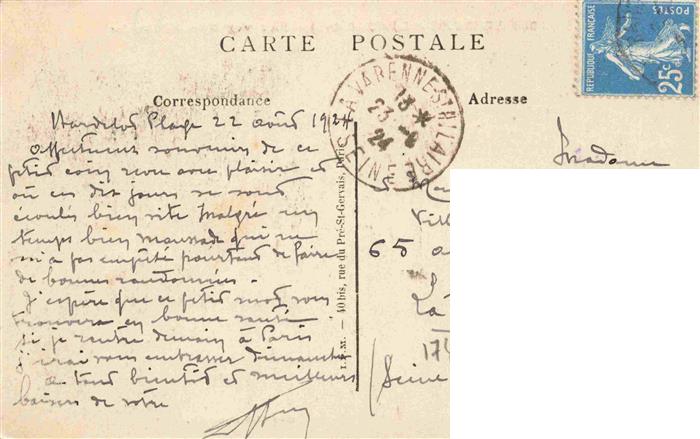 CARTE POSTALE
RÉPUBLIQUE FRANÇAISE
POSTES
25c
LA VARENNE-ST-HILAIRE
SEINE
13 *
23 - 8
24
Correspondance
Adresse
Hardelot Plage 22 août 1924
Affectueux souvenir de ce
petit coin revu avec plaisir et
où ces dix jours se sont
écoulés bien vite malgré un
temps bien maussade qui ne
m'a pas empêché pourtant de faire
de bonnes randonnées.
J'espère que ce petit mot vous
trouvera en bonne santé.
Si je rentre demain à Paris
j'irai vous embrasser dimanche
A tout bientôt et meilleurs
baisers de votre
I.P.M. — 40 bis, rue du Pré-St-Gervais, Paris
Madame
Vill
65 a
La
174
(Seine